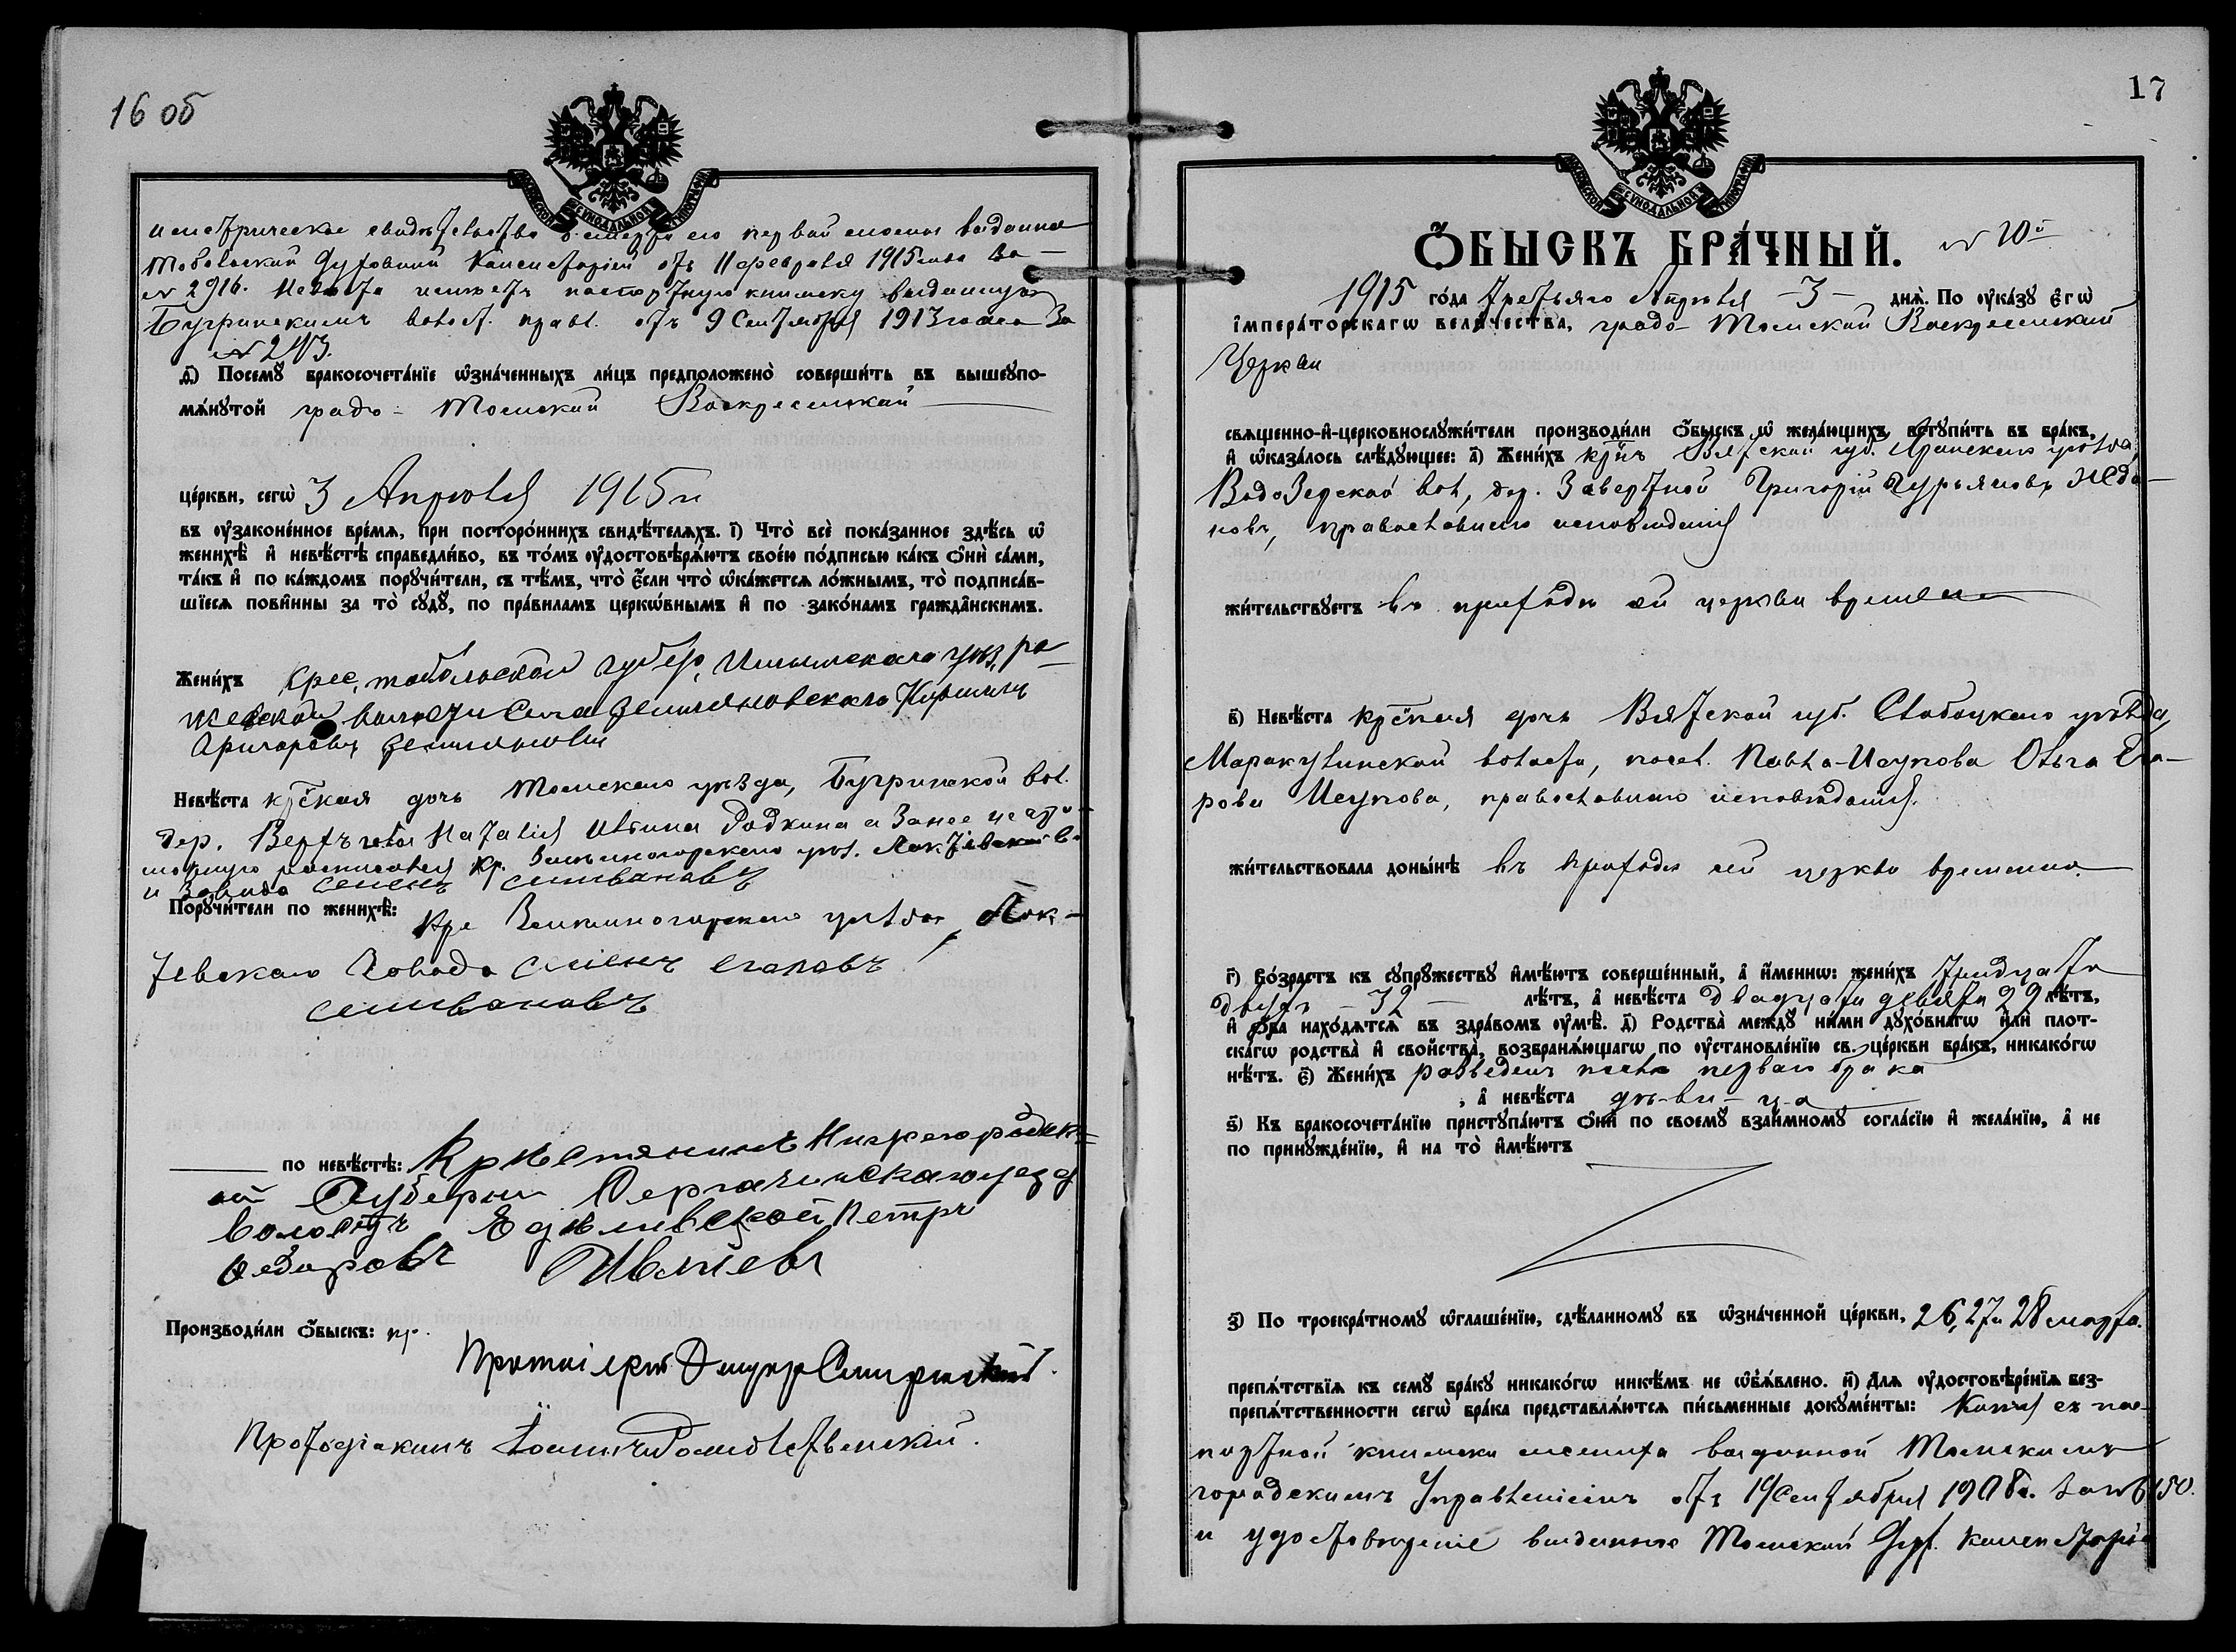 16 об
и метрическое свидѣтельство о смерти его первой жены выданное
Тобольской Духовной Консисторіей отъ 11 февраля 1915 года за
№ 2916. Невѣста имѣетъ паспортную книжку выданную
Бугринскимъ волост. правл. отъ 9 Сентября 1913 года за
№
д҃і) Посемꙋ бракосочета́нїе ѡ҆зна́ченныхъ ли́цъ предположено̀ соверши́ть въ вышеꙋпо-
мѧ́нꙋтой градо-Томской Воскресенской
це́ркви, сегѡ̀ 3 Апрѣля 1915 г
въ ᲂу҆зако́ненное вре́мѧ, при посторо́ннихъ свидѣ́телѧхъ. і҃) Что̀ всѐ пока́занное здѣ́сь ѡ҆
женихѣ̀ и҆ невѣ́стѣ справедли́во, въ то́мъ ᲂу҆достовѣрѧ́ютъ свое́ю по́дписью ка́къ ѻ҆нѝ са́ми,
та́къ и҆ по ка́ждомъ порꙋчи́тели, съ тѣ́мъ, что̀ є҆́сли что̀ ѡ҆ка́жетсѧ ло́жнымъ, то̀ подписа́в-
шїесѧ пови́нны за то̀ сꙋдꙋ̀, по пра́виламъ церкѡ́внымъ и҆ по зако́намъ гражда́нскимъ.
Жени́хъ Крес. тобольской губер, Ишимскаго уѣз,
волости Села
Григоровъ
Невѣ́ста кр҃ская дочь Томскаго уѣзда, Бугринской вол.
дер. Наталія Родкина а за нее неграмотную
росписался кр. Змѣиногорскаго уѣз. Локтевскаго
завода семенъ селивановъ
Порꙋчи́тели по женихѣ̀: Кре Змѣиногорскаго уѣзда, Лок-
тевскаго Завода семенъ егоровъ
селивановъ
по невѣ́стѣ: Крѣстянинъ Нижегородск
ой Губерни Сергачинскаго уезда
волость Едѣливской Петръ
Федоровъ Ивлиевъ
Производи́ли ѻ҆́быскъ: пр.
Протоіерей Смиренскій.
Протодіаконъ Іоаннъ Рождественскій.
17
Ѻ҆́БЫСКЪ БРА́ЧНЫЙ. № 20й
1915 го́да третьяго Апрѣля -3- днѧ̀. По ᲂу҆ка́зꙋ Є҆гѡ̀
І҆мпера́торскагѡ вели́чества, градо-Томской Воскресенской
Церкви
свѧще́нно-и҆-церковнослꙋжи́тели производи́ли ѻ҆́быскъ ѡ҆ жела́ющихъ встꙋпи́ть въ бра́къ,
и҆ ѡ҆каза́лось слѣ́дꙋющее: а҃) Жени́хъ кр҃нъ Вятской губ. Яранскаго уѣзда
Водозерской вол, дер. Завертной Григорій Гурьяновъ Жда-
новъ, православнаго исповѣданія
жи́тельствꙋетъ въ приходѣ сей церкви временно
в҃) Невѣ́ста кр҃ская дочь Вятской губ. Слободскаго уѣзда,
Маракулинской волости, почин. Павла-Исупова Ольга Его-
рова Исупова, православнаго исповѣданія.
жи́тельствовала доны́нѣ въ приходѣ сей церкви временно.
г҃) Во́зрастъ къ сꙋпрꙋжествꙋ и҆мѣ́ютъ соверше́нный, а҆ и҆́меннѡ: жени́хъ тридцати
двухъ - 32 - лѣ́тъ, а҆ невѣ́ста двадцати девяти 29 лѣ́тъ,
и҆ ѻ҆́ба нахо́дѧтсѧ въ здра́вомъ ᲂу҆мѣ̀. д҃) Родства̀ междꙋ̀ ни́ми дꙋхо́внагѡ и҆лѝ плот-
ска́гѡ родства̀ и҆ свойства̀, возбранѧ́ющагѡ по ᲂу҆становле́нїю св. це́ркви бра́къ, никако́гѡ
нѣ́тъ. є҃) Жени́хъ разведенъ послѣ перваго брака
, а҆ невѣ́ста дѣ-ви-ца
ѕ҃) Къ бракосочета́нїю пристꙋпа́ютъ ѻ҆нѝ по своемꙋ̀ взаи́мномꙋ согла́сїю и҆ жела́нїю, а҆ не
по принꙋжде́нїю, и҆ на то̀ и҆мѣ́ютъ
з҃) По троекра́тномꙋ ѡ҆глаше́нїю, сдѣ́ланномꙋ въ ѡ҆зна́ченной це́ркви, 26, 27 и 28 марта.
препѧ́тствїѧ къ семꙋ̀ бра́кꙋ никако́гѡ никѣ́мъ не ѡ҆б̾ѧ́влено. и҃) Длѧ ᲂу҆достовѣре́нїѧ без-
препѧ́тственности сегѡ̀ бра́ка представлѧ́ютсѧ пи́сьменные докꙋме́нты: Копія съ пас-
портной книжки жениха выданной Томскимъ
городскимъ Управленіемъ отъ 19 Сентября 1908 г. за № 6150.
и удостовѣреніе выданное Томской Дух. Консисторіе